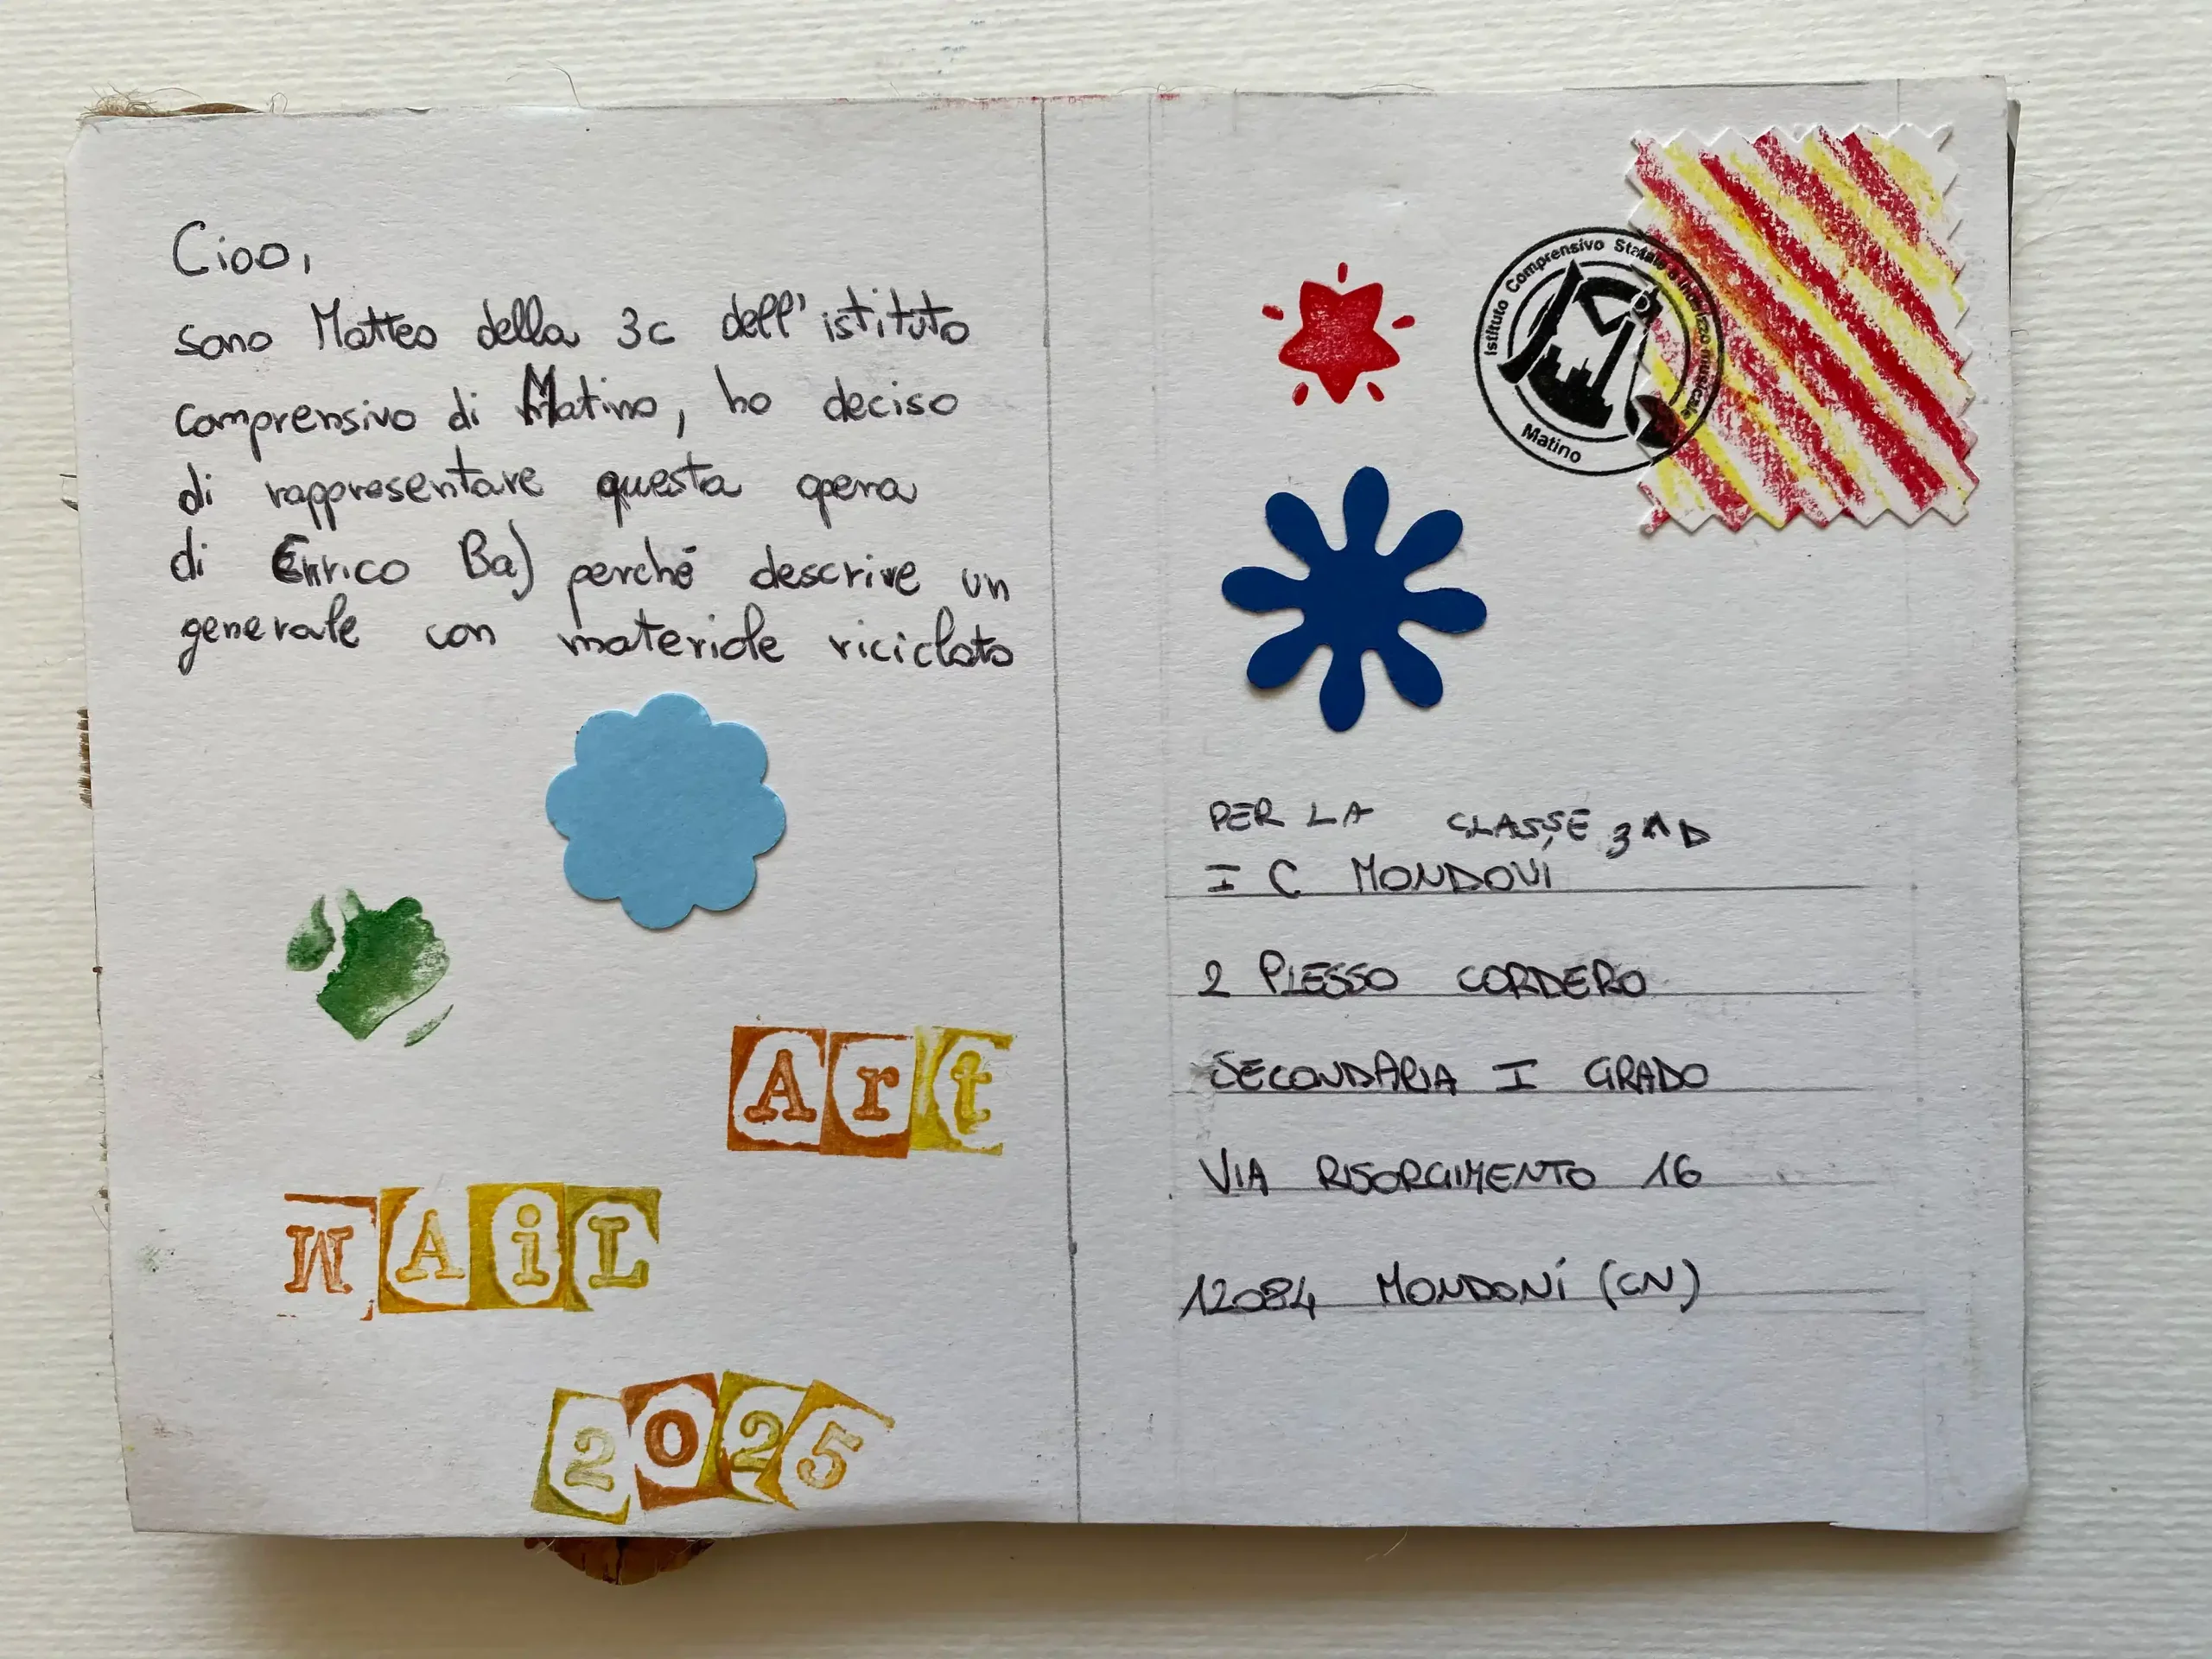 Ciao,
sono Matteo della 3c dell'istituto
comprensivo di Matino, ho deciso
di rappresentare questa opera
di Enrico Baj perché descrive un
generale con materiale riciclato
Art
MAiL
2025
Istituto Comprensivo Statale a indirizzo musicale
Matino
PER LA CLASSE 3^D
I C MONDOVÍ
2 PLESSO CORDERO
SECONDARIA I GRADO
VIA RISORGIMENTO 16
12084 MONDONÍ (CN)